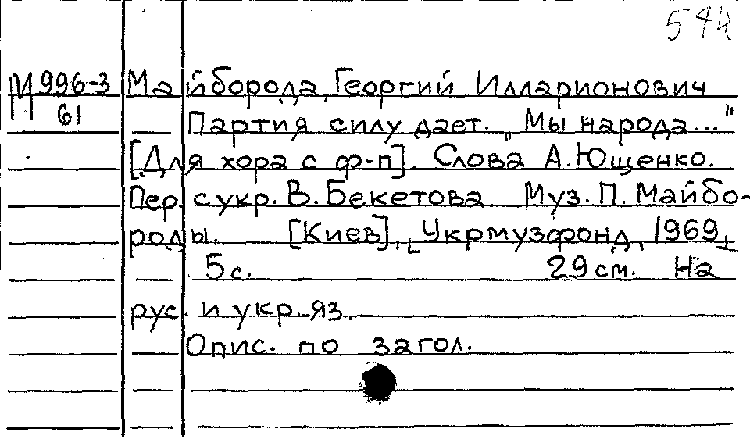 54к
М 996-3 Майборода, Георгий Илларионович
61
Партия силу дает. „Мы народа..."
[Для хора с ф-п]. Слова А. Ющенко.
Пер. с укр. В. Бекетова Муз. П. Майбо-
роды. [Киев], Укрмузфонд, 1969.
5 с. 29 см. На
рус. и укр. яз.
Опис. по загол.